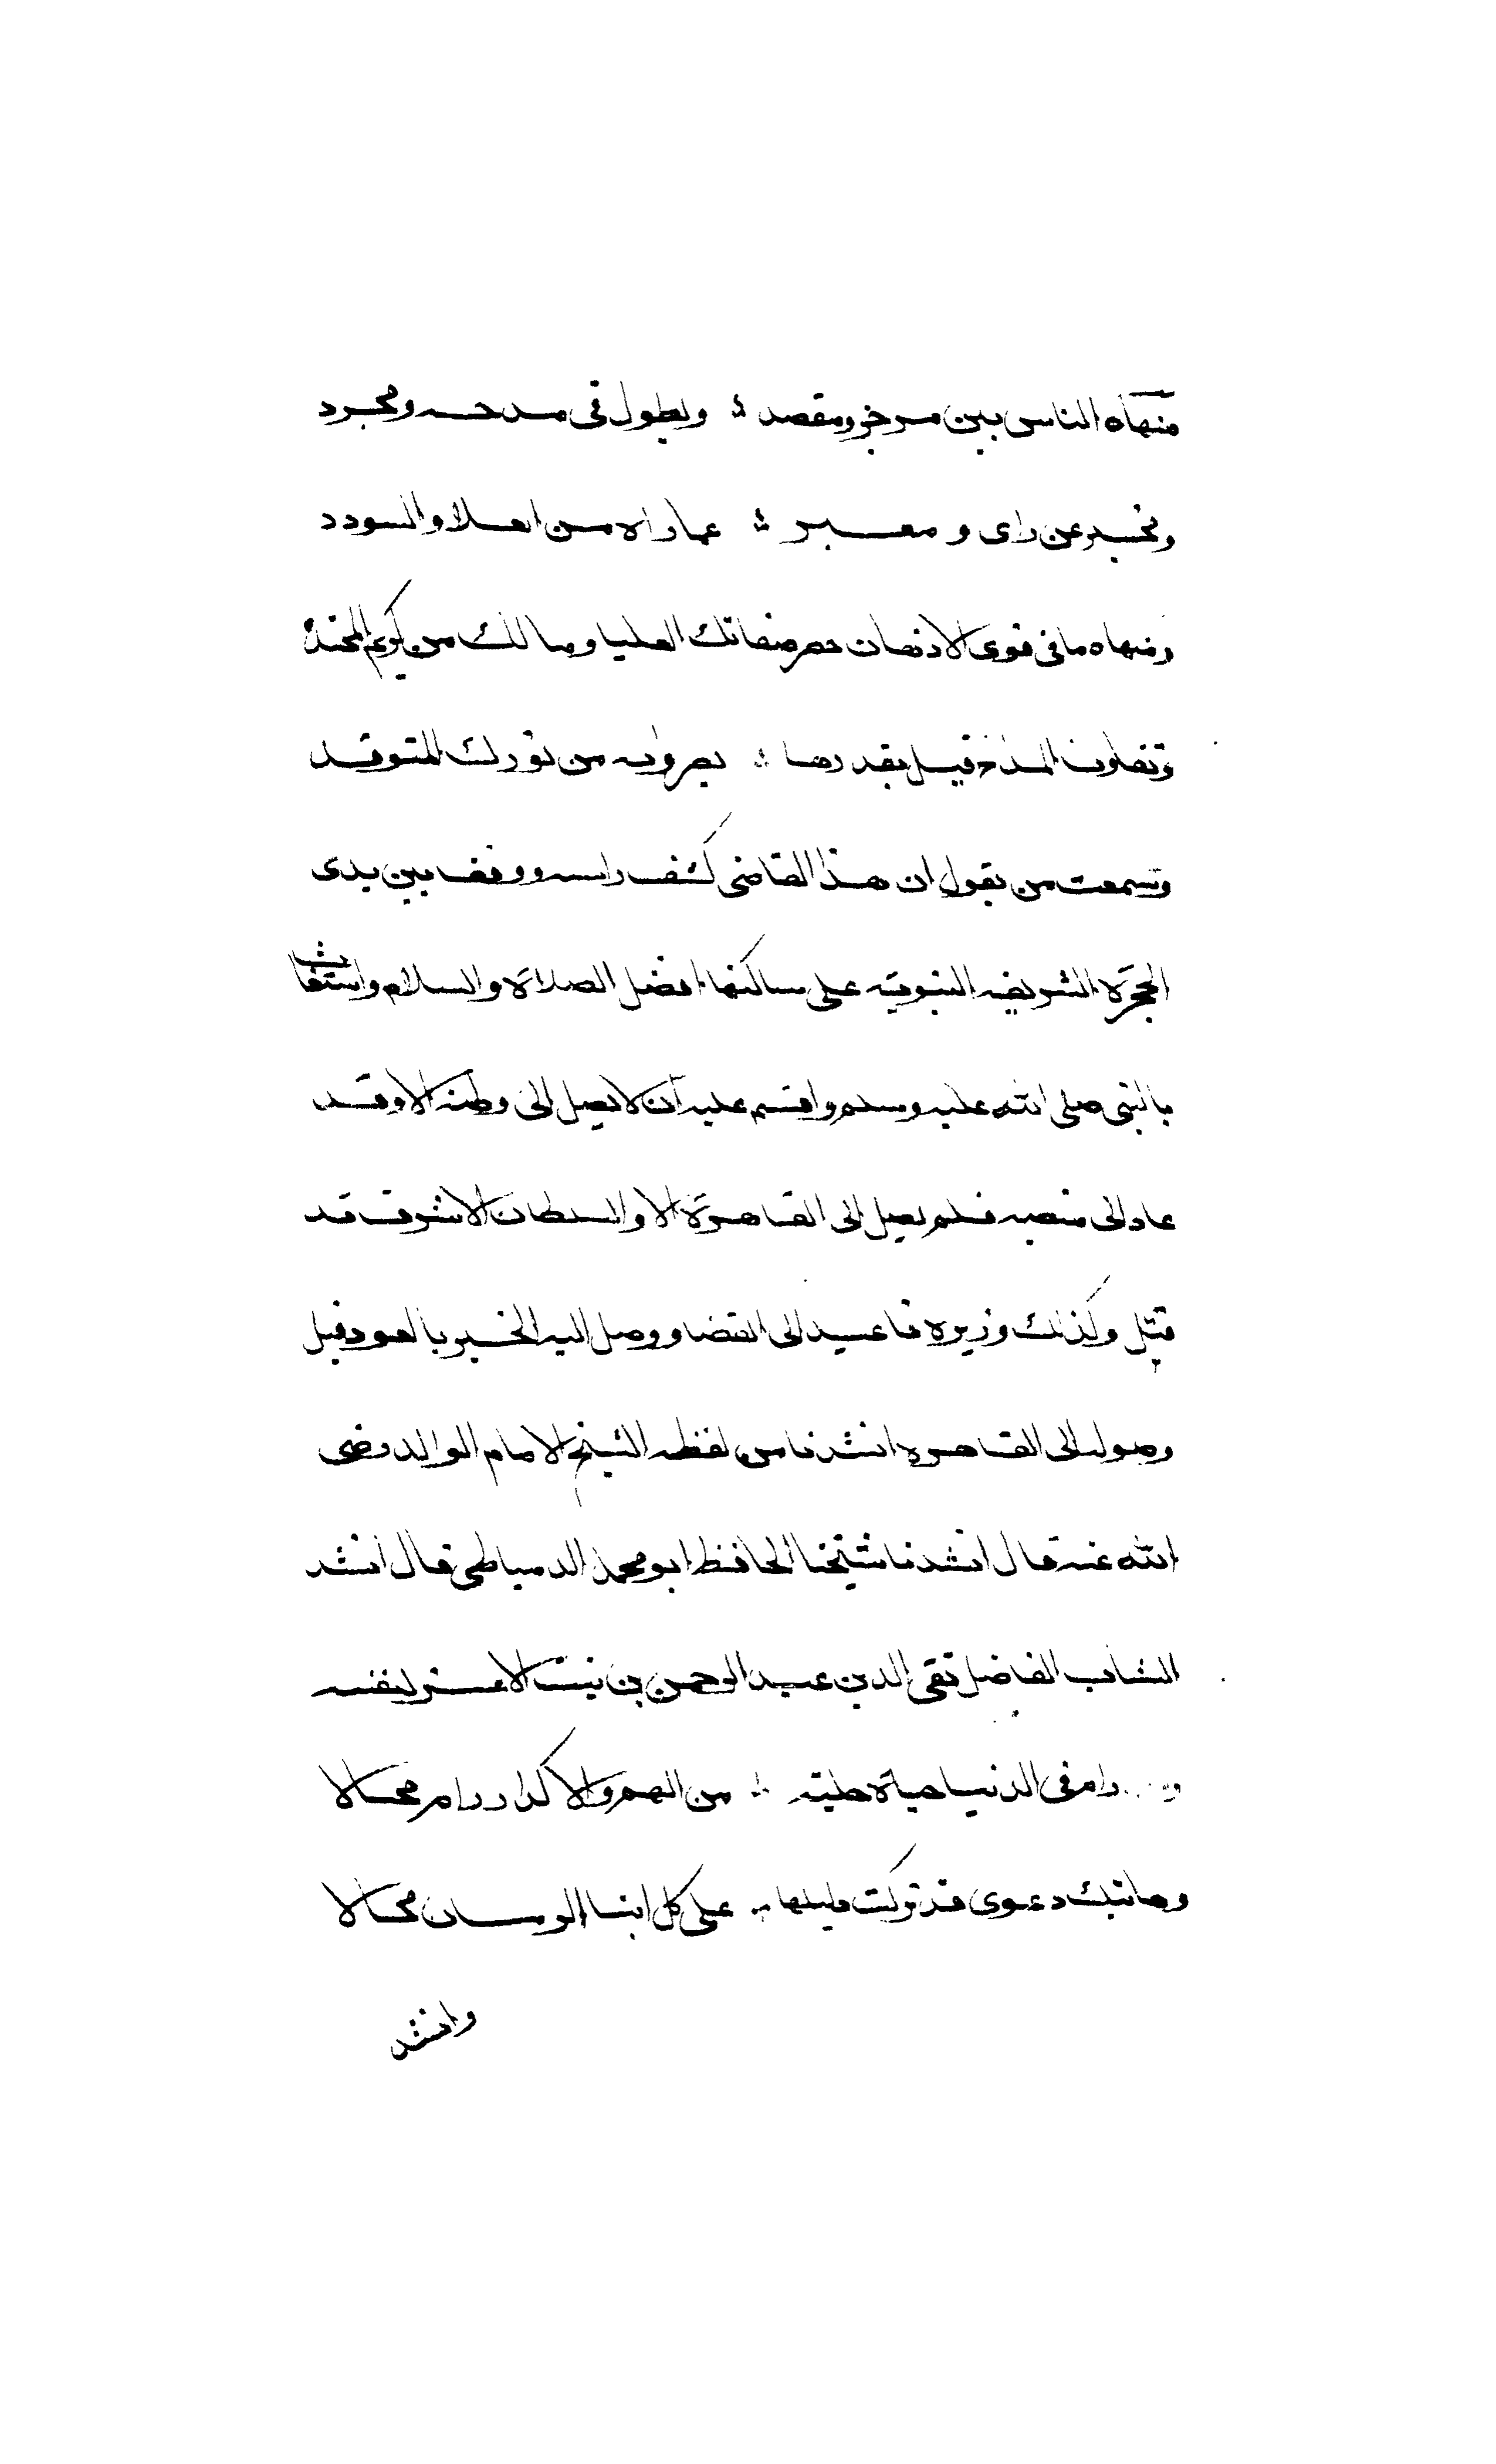 منهاه الناس بين مرخز ومقصد ؛ ويطول فى مدحه ومجرد
ونخبر عن راى و معبر ؛ عماراه من العلا والسودد
ومنهاه ما فى قوى الاذهان حصر صفاتك العليا ومالك من كريم المحتد
وتفاوت المداح فيك بقدرها ؛ بصرونه من نورك المتوقد
وسمعت من يقول ان هذا القاضى كشف راسه ووقف بين يدى
الحجرة الشريفه النبويه على ساكنها افضل الصلاة والسلام واستغاث
بالنبى صلى الله عليه وسلم واقسم عليه ان لا يصل الى وطنه الا وقد
عاد الى منصبه فلم يصل الى القاهرة الا والسلطان الاشرف قد
قتل وكذلك وزيره فاعيد الى القضا ووصل اليه الخبر بالعود قبل
وصوله الى القاهره انشدنا من لفظه الشيخ الامام الوالد رضى
الله عنه قال انشدنا شيخنا الحافظ ابو محمد الدمياطى قال انشد
الشاب الفاضل تقى الدين عبد الرحمن بن بنت الاعز لنفسه
رام فى الدنيا حياة خليه ؛ من الهم والاكدار رام محالا
وهاتيك دعوى قد تركت دليلها ؛ على كل ابنا الزمان محالا
وانشد